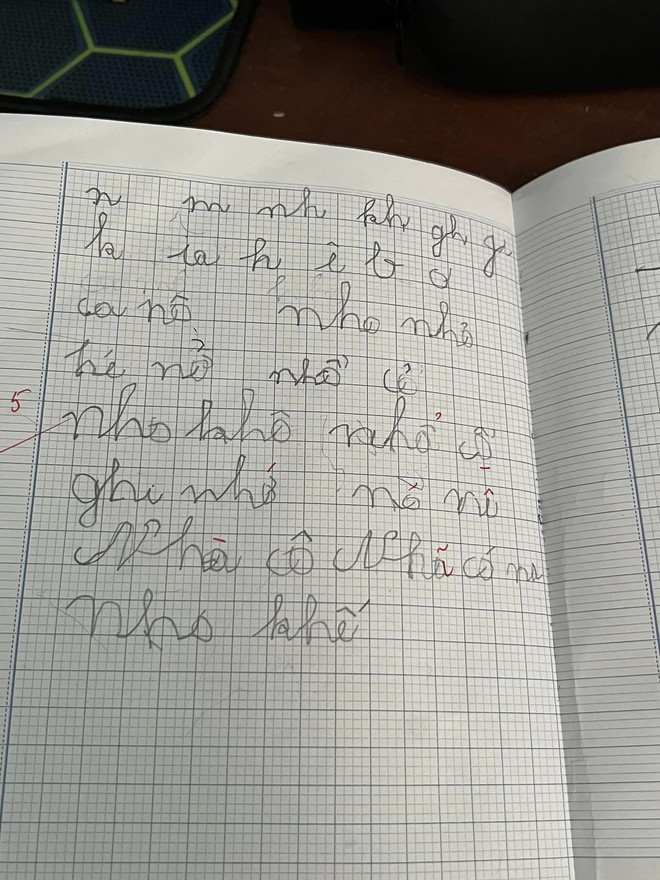 n m nh kh gh gi
k ia h ê b d
ca nô nho nhỏ
hé nở nhổ cỏ
5
nho khô nhổ cỏ
ghi nhớ nỗ nì
Nhà cô Nhã có
nho khế